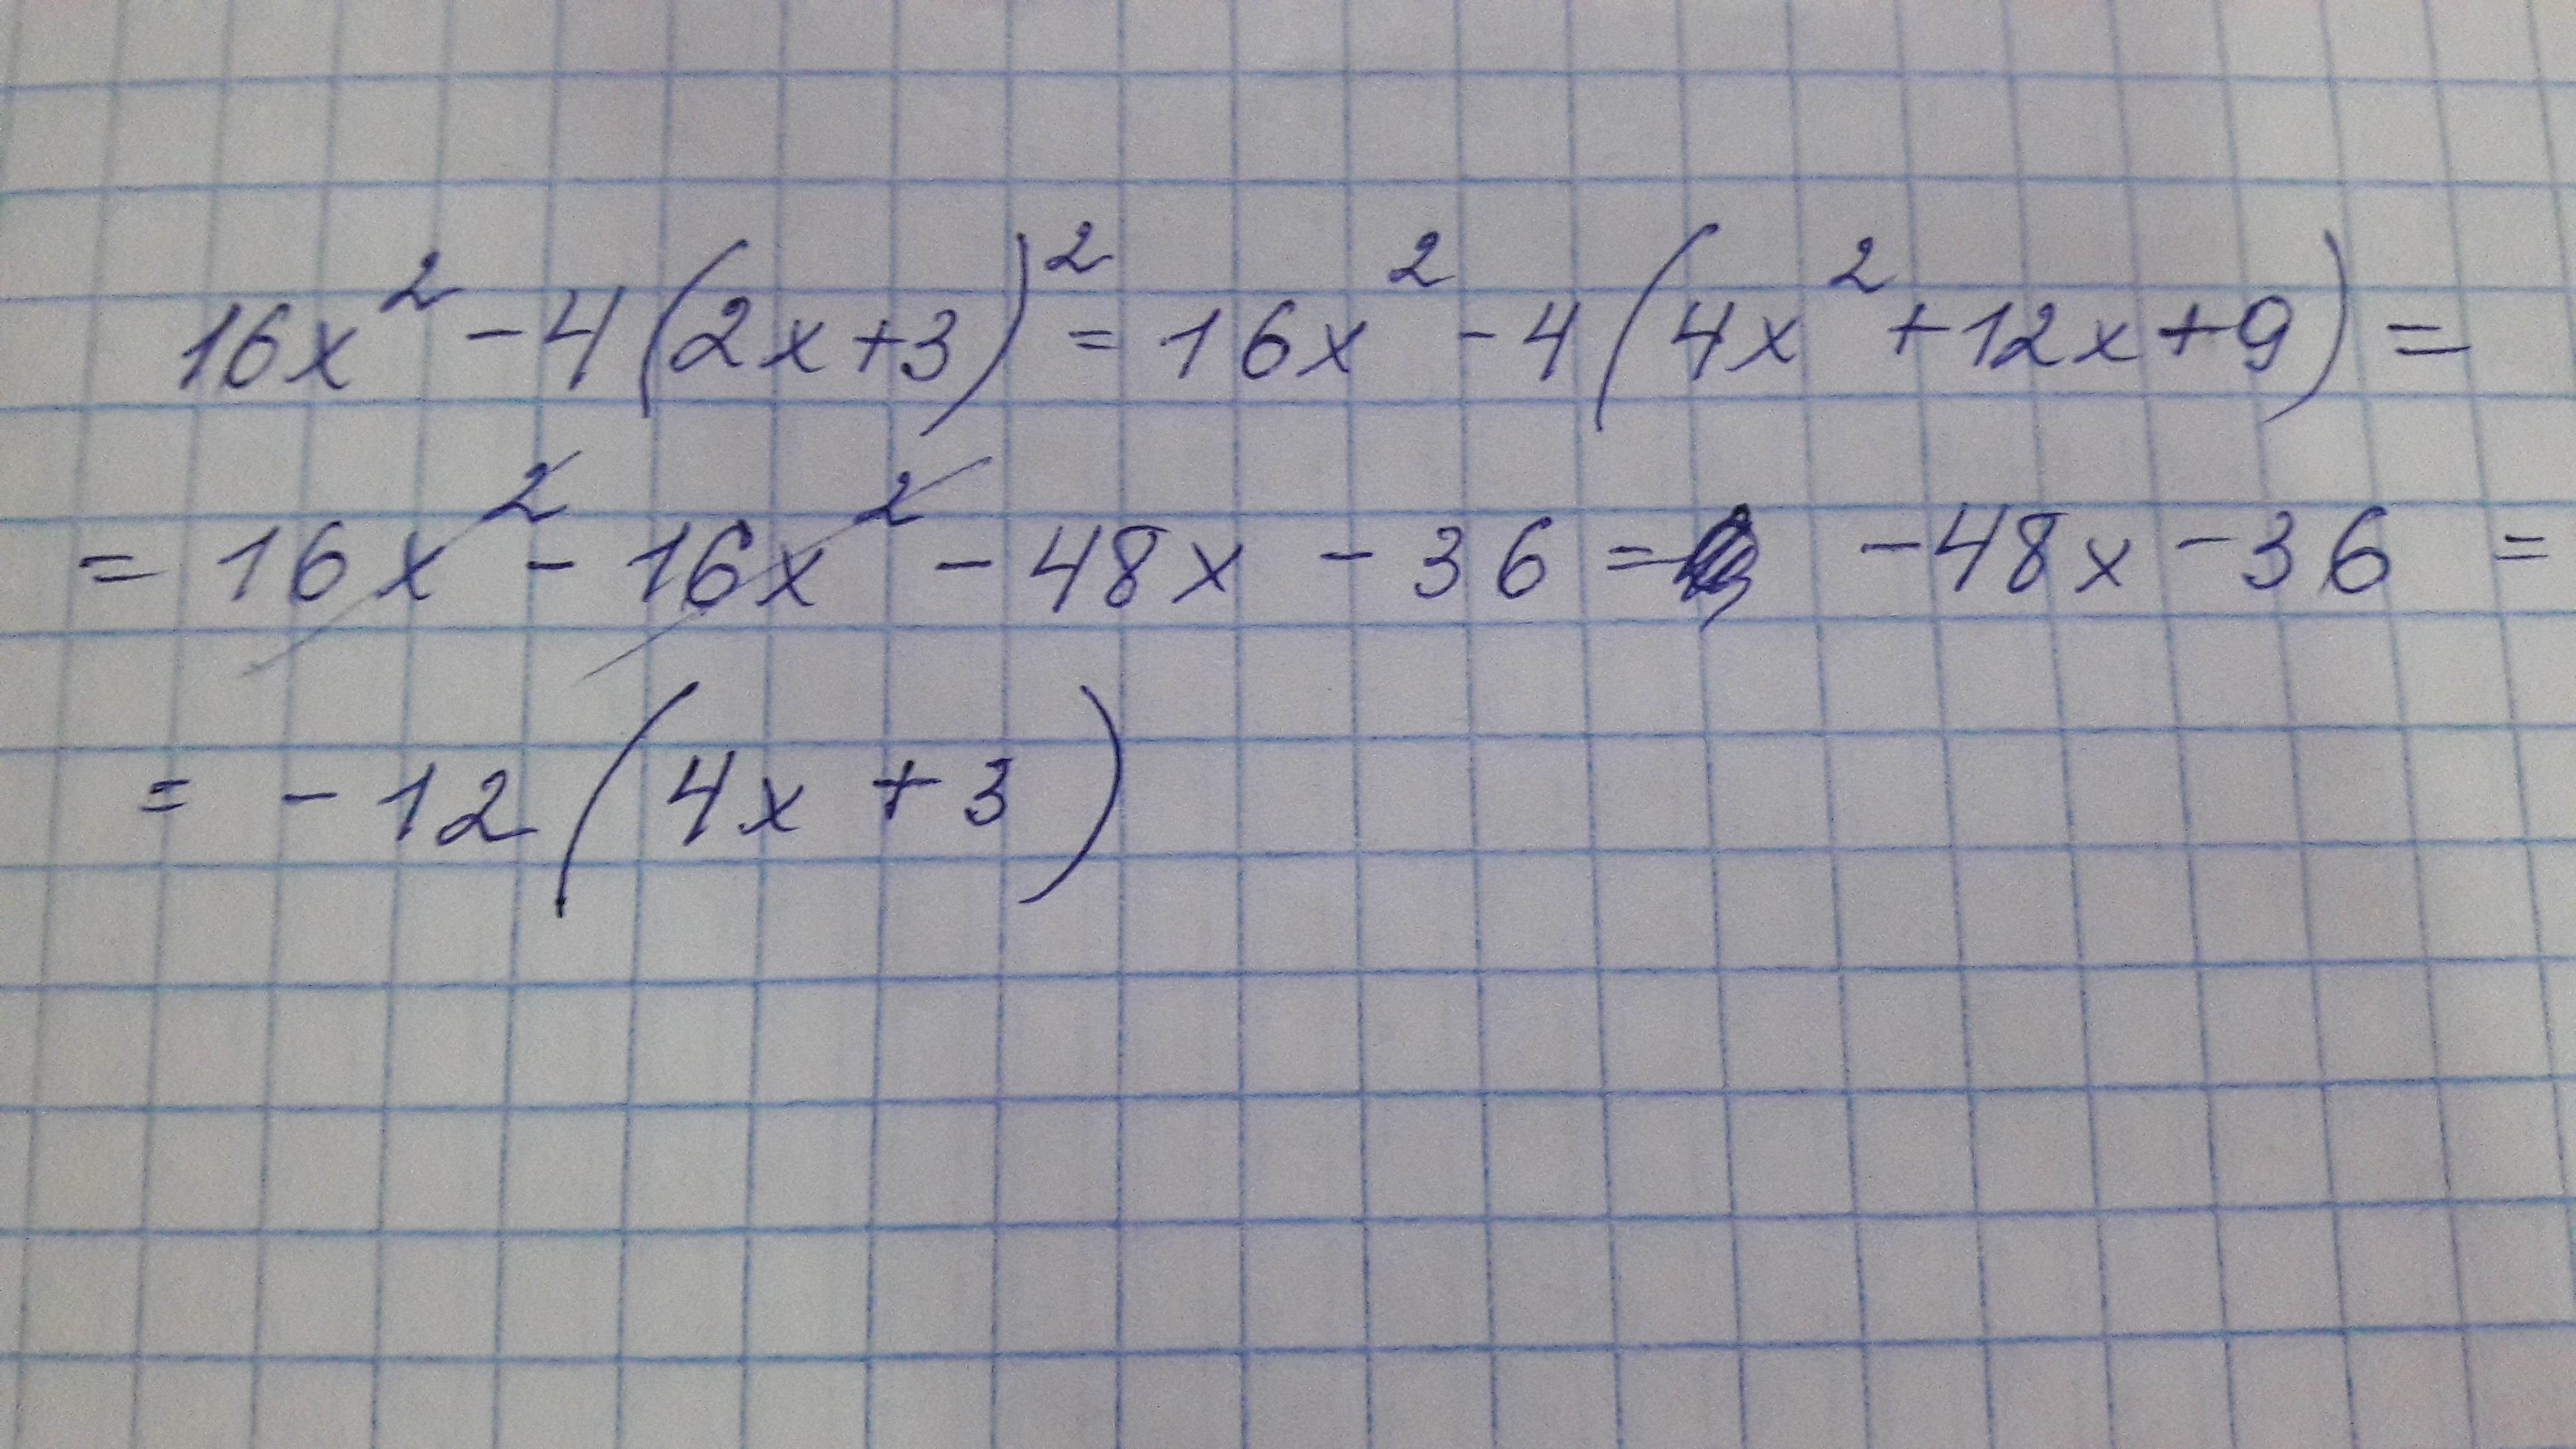 16x² - 4(2x+3)² = 16x² - 4(4x² + 12x + 9) =
= 16x² - 16x² - 48x - 36 = - 48x - 36 =
= - 12(4x + 3)